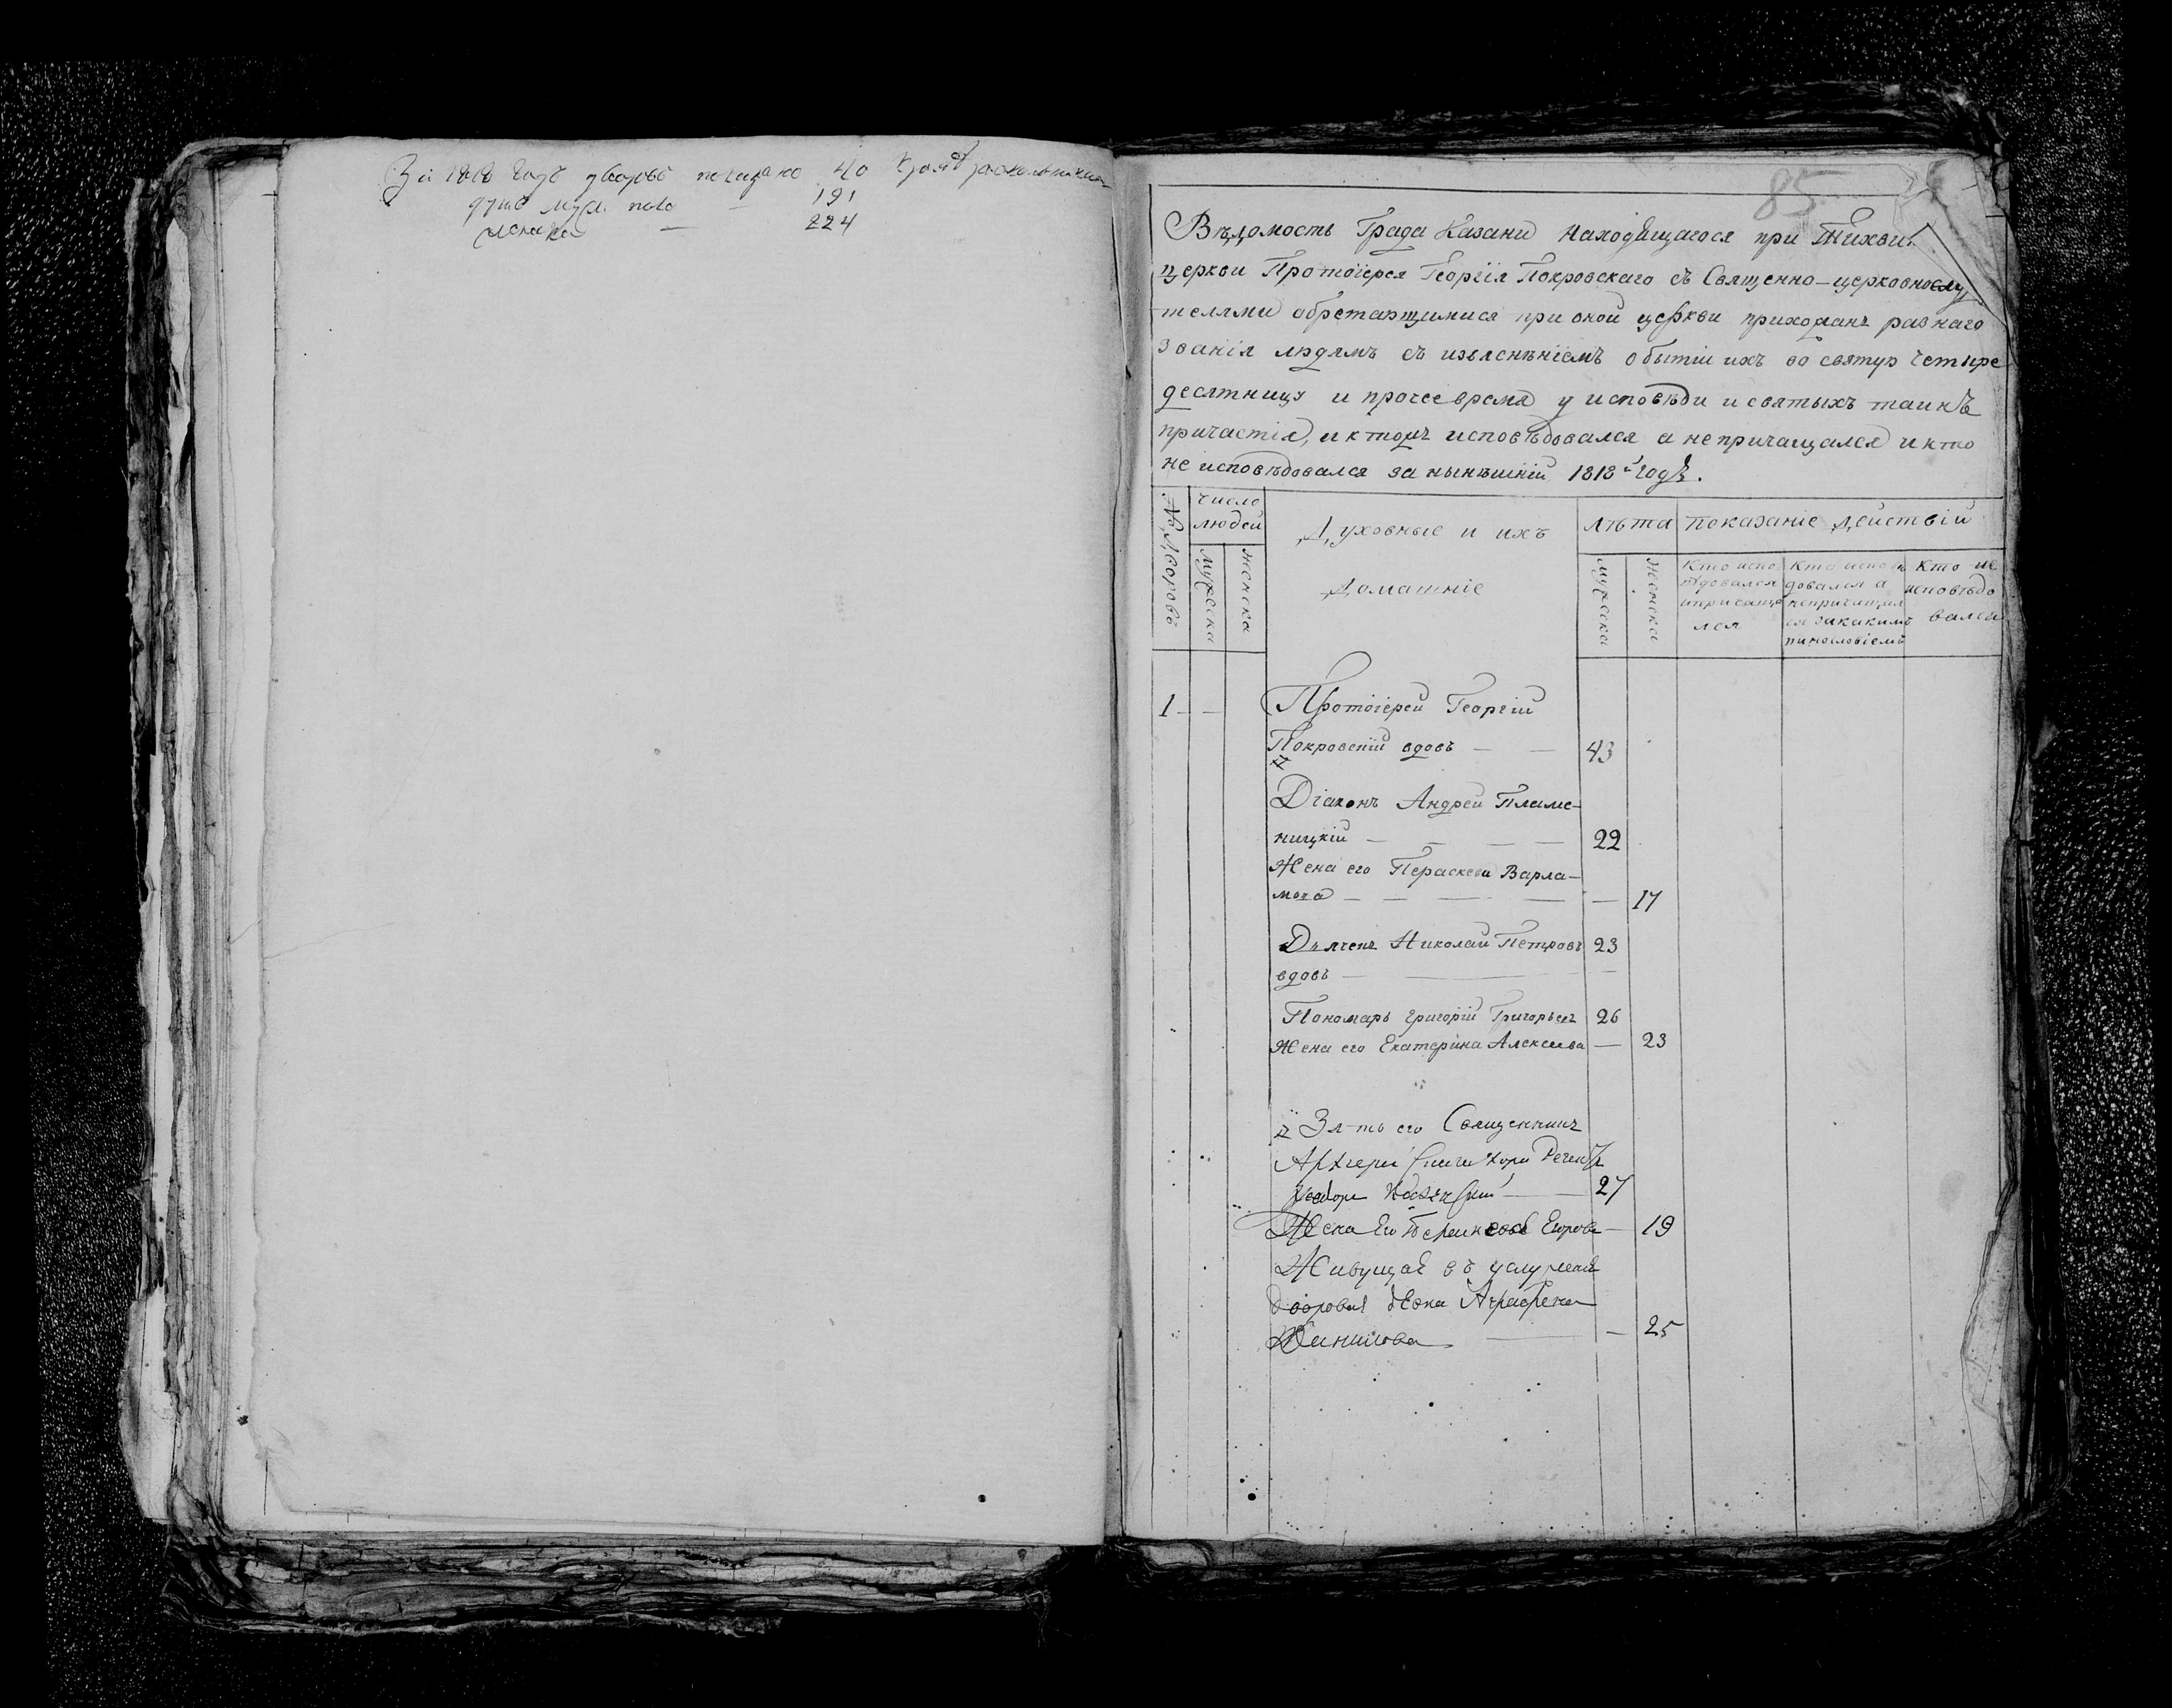 За 1818 годъ дворовъ показано 40 кромѣ раскольниковъ
душъ муж. пола — 191
женска — 224
85
Вѣдомость Града Казани находящагося при Тихвин.
церкви Протоіерея Георгія Покровскаго съ Священно-церковнослу
телями обретающимися при оной церкви прихожанъ разнаго
званія людямъ съ изъясненіемъ о бытіи ихъ во святую четыре
десятницу и прочее время у исповѣди и святыхъ таинъ
причастія, и ктомъ исповѣдовался а не причащался и кто
не исповѣдовался за нынѣшній 1818й годъ.
№ Дворовъ
число людей
мужеска
женска
Духовные и ихъ
Домашніе
лѣта
мужеска
женска
показаніе дѣйствій
Кто испо
вѣдовался
и причаща
лся
Кто исповѣ
довался а
непричащал
ся за какимъ
винословіемъ
Кто не
исповѣдо
вался
1 — — Протоіерей Георгій
Покровскій вдовъ — — 43
Діаконъ Андрей Пламе-
ницкій — — — — 22
Жена его Параскева Варла-
мова — — — — — 17
Дьячекъ Николай Петровъ 23
вдовъ — — —
Пономарь Григорій Григорьевъ 26
Жена его Екатерина Алексеева — 23
Зять его Священникъ
27
Жена Его Егорова — 19
Живущая въ услуженіи
дворовая дѣвка Аграфена
Данилова — — 25